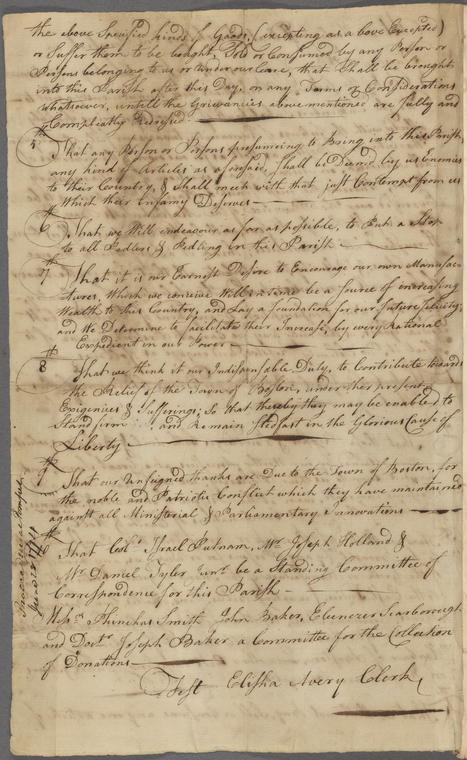 the above Specified kinds of Goods, (excepting as above Excepted)
or Suffer them to be bought, Sold or Consumed by any Person or
Persons belonging to us or under our Care, that Shall be brought
into this Parish after this Day, on any Terms or Considerations
Whatsoever, untill the Grievancies above mentioned are fully and
Compleatly Redressed
5 That any Person or Persons presuming to Bring into this Parish,
any kind of Articles as aforesaid, Shall be Deemed by us Enemies
to their Country, & Shall meet with that just Contempt from us
Which their Infamy Deserves
6 That we Will endeavour as far as possible, to Put a Stop
to all Pedlers & Pedling in this Parish
7 That it is our Earnest Desire to Encourage our own Manufac-
tures, Which we conceive Will in time be a Source of increasing
Wealth to this Country, and Lay a foundation for our future felicity;
and We Determine to facilitate their Increase, by every Rational
Expedient in our Power
8 That we think it our Indispensable Duty, to Contribute towards
the Relief of the Town of Boston, under their present
Exigencies & Sufferings; So that thereby they may be enabled to
Stand firm and Remain Stedfast in the Glorious Cause of
Liberty
9 That our Unfeigned thanks are Due to the Town of Boston, for
the noble and Patriotic Conflict which they have maintained
against all Ministerial & Parliamentary Innovations
10 That Colo. Israel Putnam, Mr. Joseph Holland &
Mr. Daniel Tyler Junr. be a Standing Committee of
Correspondence for this Parish
Messrs. Phinehas Smith John Baker, Ebenezer Scarborough
and Doctr. Joseph Baker a Committee for the Collection
of Donations
Test Elisha Avery Clerk